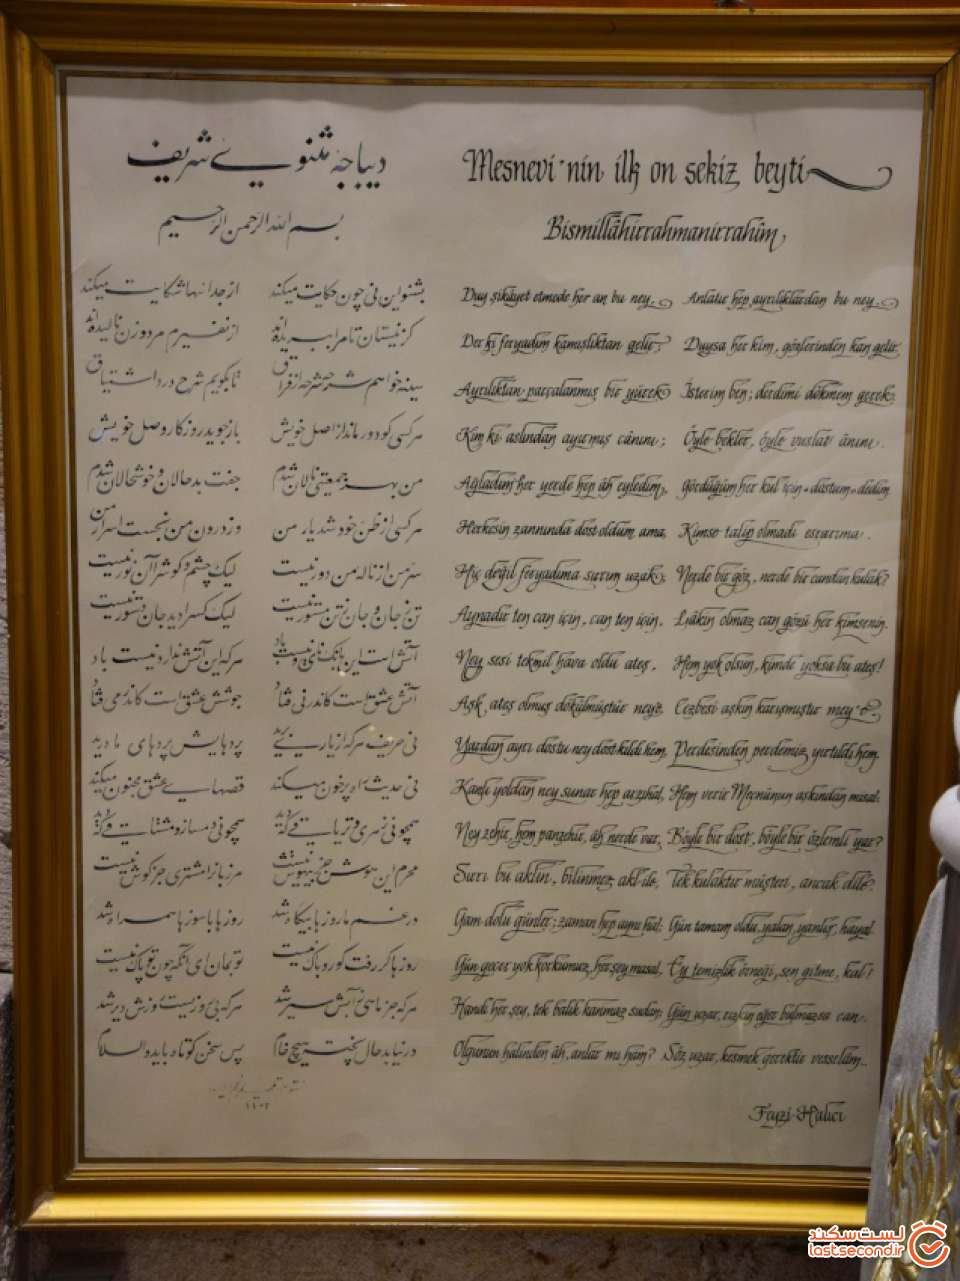 دیباجهٔ مثنوی شریف
بسم الله الرحمن الرحیم
بشنو این نی چون حکایت میکند از جدائیها شکایت میکند
کز نیستان تا مرا ببریده‌اند از نفیرم مرد و زن نالیده‌اند
سینه خواهم شرحه شرحه از فراق تا بگویم شرح درد اشتیاق
هر کسی کو دور ماند از اصل خویش باز جوید روزگار وصل خویش
من بهر جمعیتی نالان شدم جفت بدحالان و خوشحالان شدم
هر کسی از ظن خود شد یار من وز درون من نجست اسرار من
سر من از ناله من دور نیست لیک چشم و گوش را آن نور نیست
تن ز جان و جان ز تن مستور نیست لیک کس را دید جان دستور نیست
آتش است این بانگ نای و نیست باد هر که این آتش ندارد نیست باد
آتش عشق است کاندر نی فتاد جوشش عشق است کاندر می فتاد
نی حریف هر که از یاری برید پردهایش پردهای ما درید
نی حدیث راه پرخون میکند قصهای عشق مجنون میکند
همچو نی زهری و تریاقی که دید همچو نی دمساز و مشتاقی که دید
محرم این هوش جز بیهوش نیست مر زبانرا مشتری جز گوش نیست
در غم ما روزها بیگاه شد روزها با سوزها همراه شد
روزها گر رفت گو رو باک نیست تو بمان ای آنکه چون تو پاک نیست
هر که جز ماهی ز آبش سیر شد هر که بی روزیست روزش دیر شد
در نیابد حال پخته هیچ خام پس سخن کوتاه باید والسلام
Mesnevi'nin ilk on sekiz beyti
Bismillâhirrahmanirrahîm
Duy şikâyet etmede her an bu ney, Anlatır hep ayrılıklardan bu ney.
Der ki feryadım kamışlıktan gelir, Duysa her kim, gözlerinden kan gelir.
Ayrılıktan parçalanmış bir yürek İsterim ben; derdimi dökmem gerek.
Kim ki aslından ayırmış cânını; Öyle bekler, öyle vuslat ânını.
Ağladım her yerde hep âh eyledim, Gördüğüm her kul için «dostum» dedim.
Herkesin zannında dost oldum ama, Kimse talip olmadı esrarıma.
Hiç değil feryadıma sırrım uzak; Nerde bir göz, nerde bir candan kulak?
Aynadır ten can için, can ten için, Lâkin olmaz can gözü her kimsenin.
Ney sesi tekmil hava oldu ateş, Hem yok olsun, kimde yoksa bu ateş!
Aşk ateş olmuş dökülmüştür ney'e, Cezbesi aşkın karışmıştır mey'e.
Yardan ayrı dostu ney dost kıldı hem, Perdesinden perdemiz yırtıldı hem.
Kanlı yoldan ney sunar hep arzıhal, Hem verir Mecnûnun aşkından masal.
Ney zehir, hem panzehir, âh nerde var, Böyle bir dost, böyle bir özlemli yar?
Sırrı bu aklın, bilinmez akl ile, Tek kulaktır müşteri, ancak dile.
Gam dolu günler; zaman hep aynı hal; Gün tamam oldu, yalan, yanlış, hayal.
Gün geçer yok korkumuz, her şey masal, Ey temizlik örneği, sen gitme, kal!
Kandı her şey, tek balık kanmaz sudan; Gün uzar, rızkın eğer bulmazsa can.
Olgunun halinden âh, anlar mı ham? Söz uzar, kesmek gerektir vesselâm...
Feyzi Halıcı
لست‌سکند
lastsecond.ir